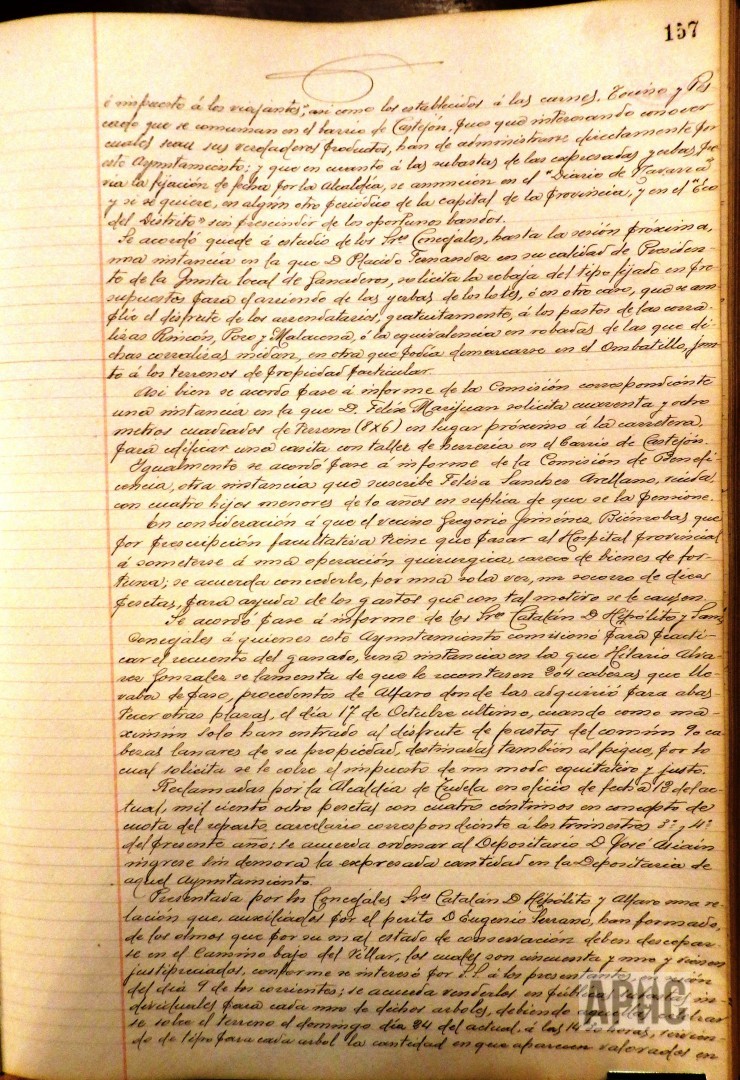 157
é impuesto á los viajantes", asi como los establecidos á las carnes, Tocino y Pes
cado que se consuman en el barrio de Castejón, pues que interesando conocer
cuales sean sus verdaderos productos, han de administrarse directamente por
este Ayuntamiento; y que en cuanto á las subastas de las expresadas yerbas, pre
via la fijación de fecha por la Alcaldía, se anuncien en el "Diario de Navarra"
y si se quiere, en algún otro periódico de la capital de la provincia, y en el "Eco
del Distrito" sin prescindir de los oportunos bandos.
Se acordó quede á estudio de los Sres Concejales, hasta la sesión próxima,
una instancia en la que D. Placido Fernandez en su calidad de Presiden
te de la Junta local de Ganaderos, solicita la rebaja del tipo fijado en pre
supuestos para el arriendo de las yerbas de los lotes, ó en otro caso, que se am
plíe el disfrute de los arrendatarios, gratuitamente, á los pastos de las corra
lizas Rincón, Poco y Malacena, ó la equivalencia en robadas de las que di
chas corralizas midan, en otra que podia demarcarse en el Ombatillo, jun
to á los terrenos de propiedad particular.
Asi bien se acordó pase á informe de la Comisión correspondiente
una instancia en la que D. Felix Marijuan solicita cuarenta y ocho
metros cuadrados de terreno (8x6) en lugar próximo á la carretera,
para edificar una casita con taller de herrería en el Barrio de Castejón.
Igualmente se acordó pase á informe de la Comisión de Benefi
cencia, otra instancia que suscribe Felisa Sanchez Arellano, viuda
con cuatro hijos menores de 10 años en suplica de que se la pensione.
En consideración á que el vecino Gregorio Jiménez Bienzobas que
por prescripción facultativa tiene que pasar al Hospital provincial
á someterse á una operación quirurgica, carece de bienes de for
tuna; se acuerda concederle, por una sola vez, un socorro de diez
pesetas, para ayuda de los gastos que con tal motivo se le causen.
Se acordó pase á informe de los Sres Catalán D. Hipólito y Sanz,
Concejales á quienes este Ayuntamiento comisionó para practi
car el recuento del ganado, una instancia en la que Hilario Alva
rez Gonzalez se lamenta de que le recontasen 304 cabezas que lle
vaba de paso, procedentes de Alfaro donde las adquirió para abas
tecer otras plazas, el día 17 de Octubre ultimo, cuando como ma
ximún solo han entrado al disfrute de pastos del común 90 ca
bezas lanares de su propiedad, destinadas también al pique, por lo
cual solicita se le cobre el impuesto de un modo equitativo y justo.
Reclamadas por la Alcaldia de Tudela en oficio de fecha 13 del ac
tual, mil ciento ocho pesetas con cuatro céntimos en concepto de
cuota del reparto carcelario correspondiente á los trimestres 3º y 4º
del presente año; se acuerda ordenar al Depositario D. José Asiain
ingrese sin demora la expresada cantidad en la Depositaria de
aquel Ayuntamiento.
Presentada por los Concejales Sres Catalán D. Hipólito y Alfaro una re
lación que, auxiliados por el perito D. Eugenio Serrano, han formado,
de los olmos que por su mal estado de conservación deben descepar
se en el Camino bajo del Villar, los cuales son cincuenta y uno y vienen
justipreciados, conforme se interesó por S.S. á los presentantes en sesión
del día 9 de los corrientes; se acuerda venderlos en pública subasta in
dividuales para cada uno de dichos arboles, debiendo
se sobre el terreno el domingo día 24 del actual, á las 14 horas, sirvien
do de tipo para cada arbol la cantidad en que aparecen valorados en
APHC